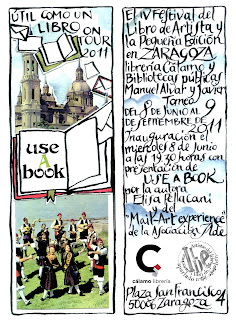 ÚTIL COMO UN
LIBRO ON
TOUR
2011
use
A
book
El IV Festival del
Libro de Artista y
la Pequeña Edición
en ZARAGOZA
librería Cálamo y
Bibliotecas públicas
Manuel Alvar y Javier
Tomeo
DEL 8 DE JUNIO AL 9
DE SEPTIEMBRE DE
2011
Inauguración el
miércoles 8 de Junio
a las 19 30 horas con
presentación de
USE A BOOK
por la autora
Elisa Pellacani
y del
"Mail-Art experience"
de la Asociación Ilde
C
cálamo librería
Ilde
Plaza San Francisco 4
50006 Zaragoza